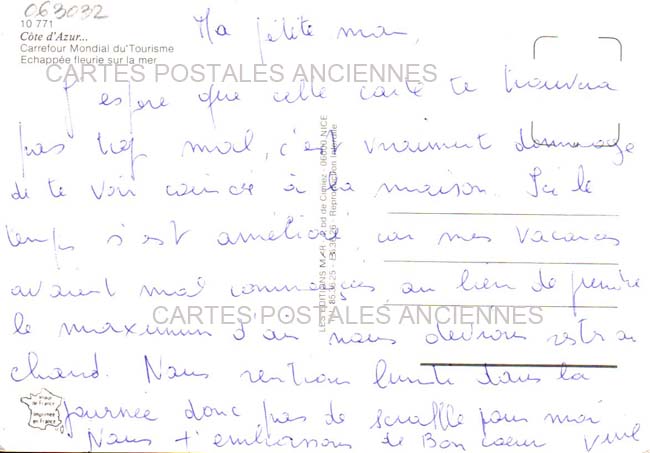 063032
10 771
Côte d'Azur...
Carrefour Mondial du Tourisme
Echappée fleurie sur la mer
Ma petite
CARTES POSTALES ANCIENNES
J espere que cette carte te trouvera
pas trop mal, c'est vraiment dommage
de te voir coincé à la maison. Ici le
temps s'est amélioré, car mes vacances
avaient mal commencées, au lieu de prendre
CARTES POSTALES ANCIENNES
le maximum d'air nous devions rester au
chaud. Nous rentrons dans la
journée donc pas de scrabble pour moi
Nous t'embrassons de Bon coeur
LES EDITIONS MAR
bd de Cimiez - 06000 NICE
Reproduction interdite
Imprimée
en France